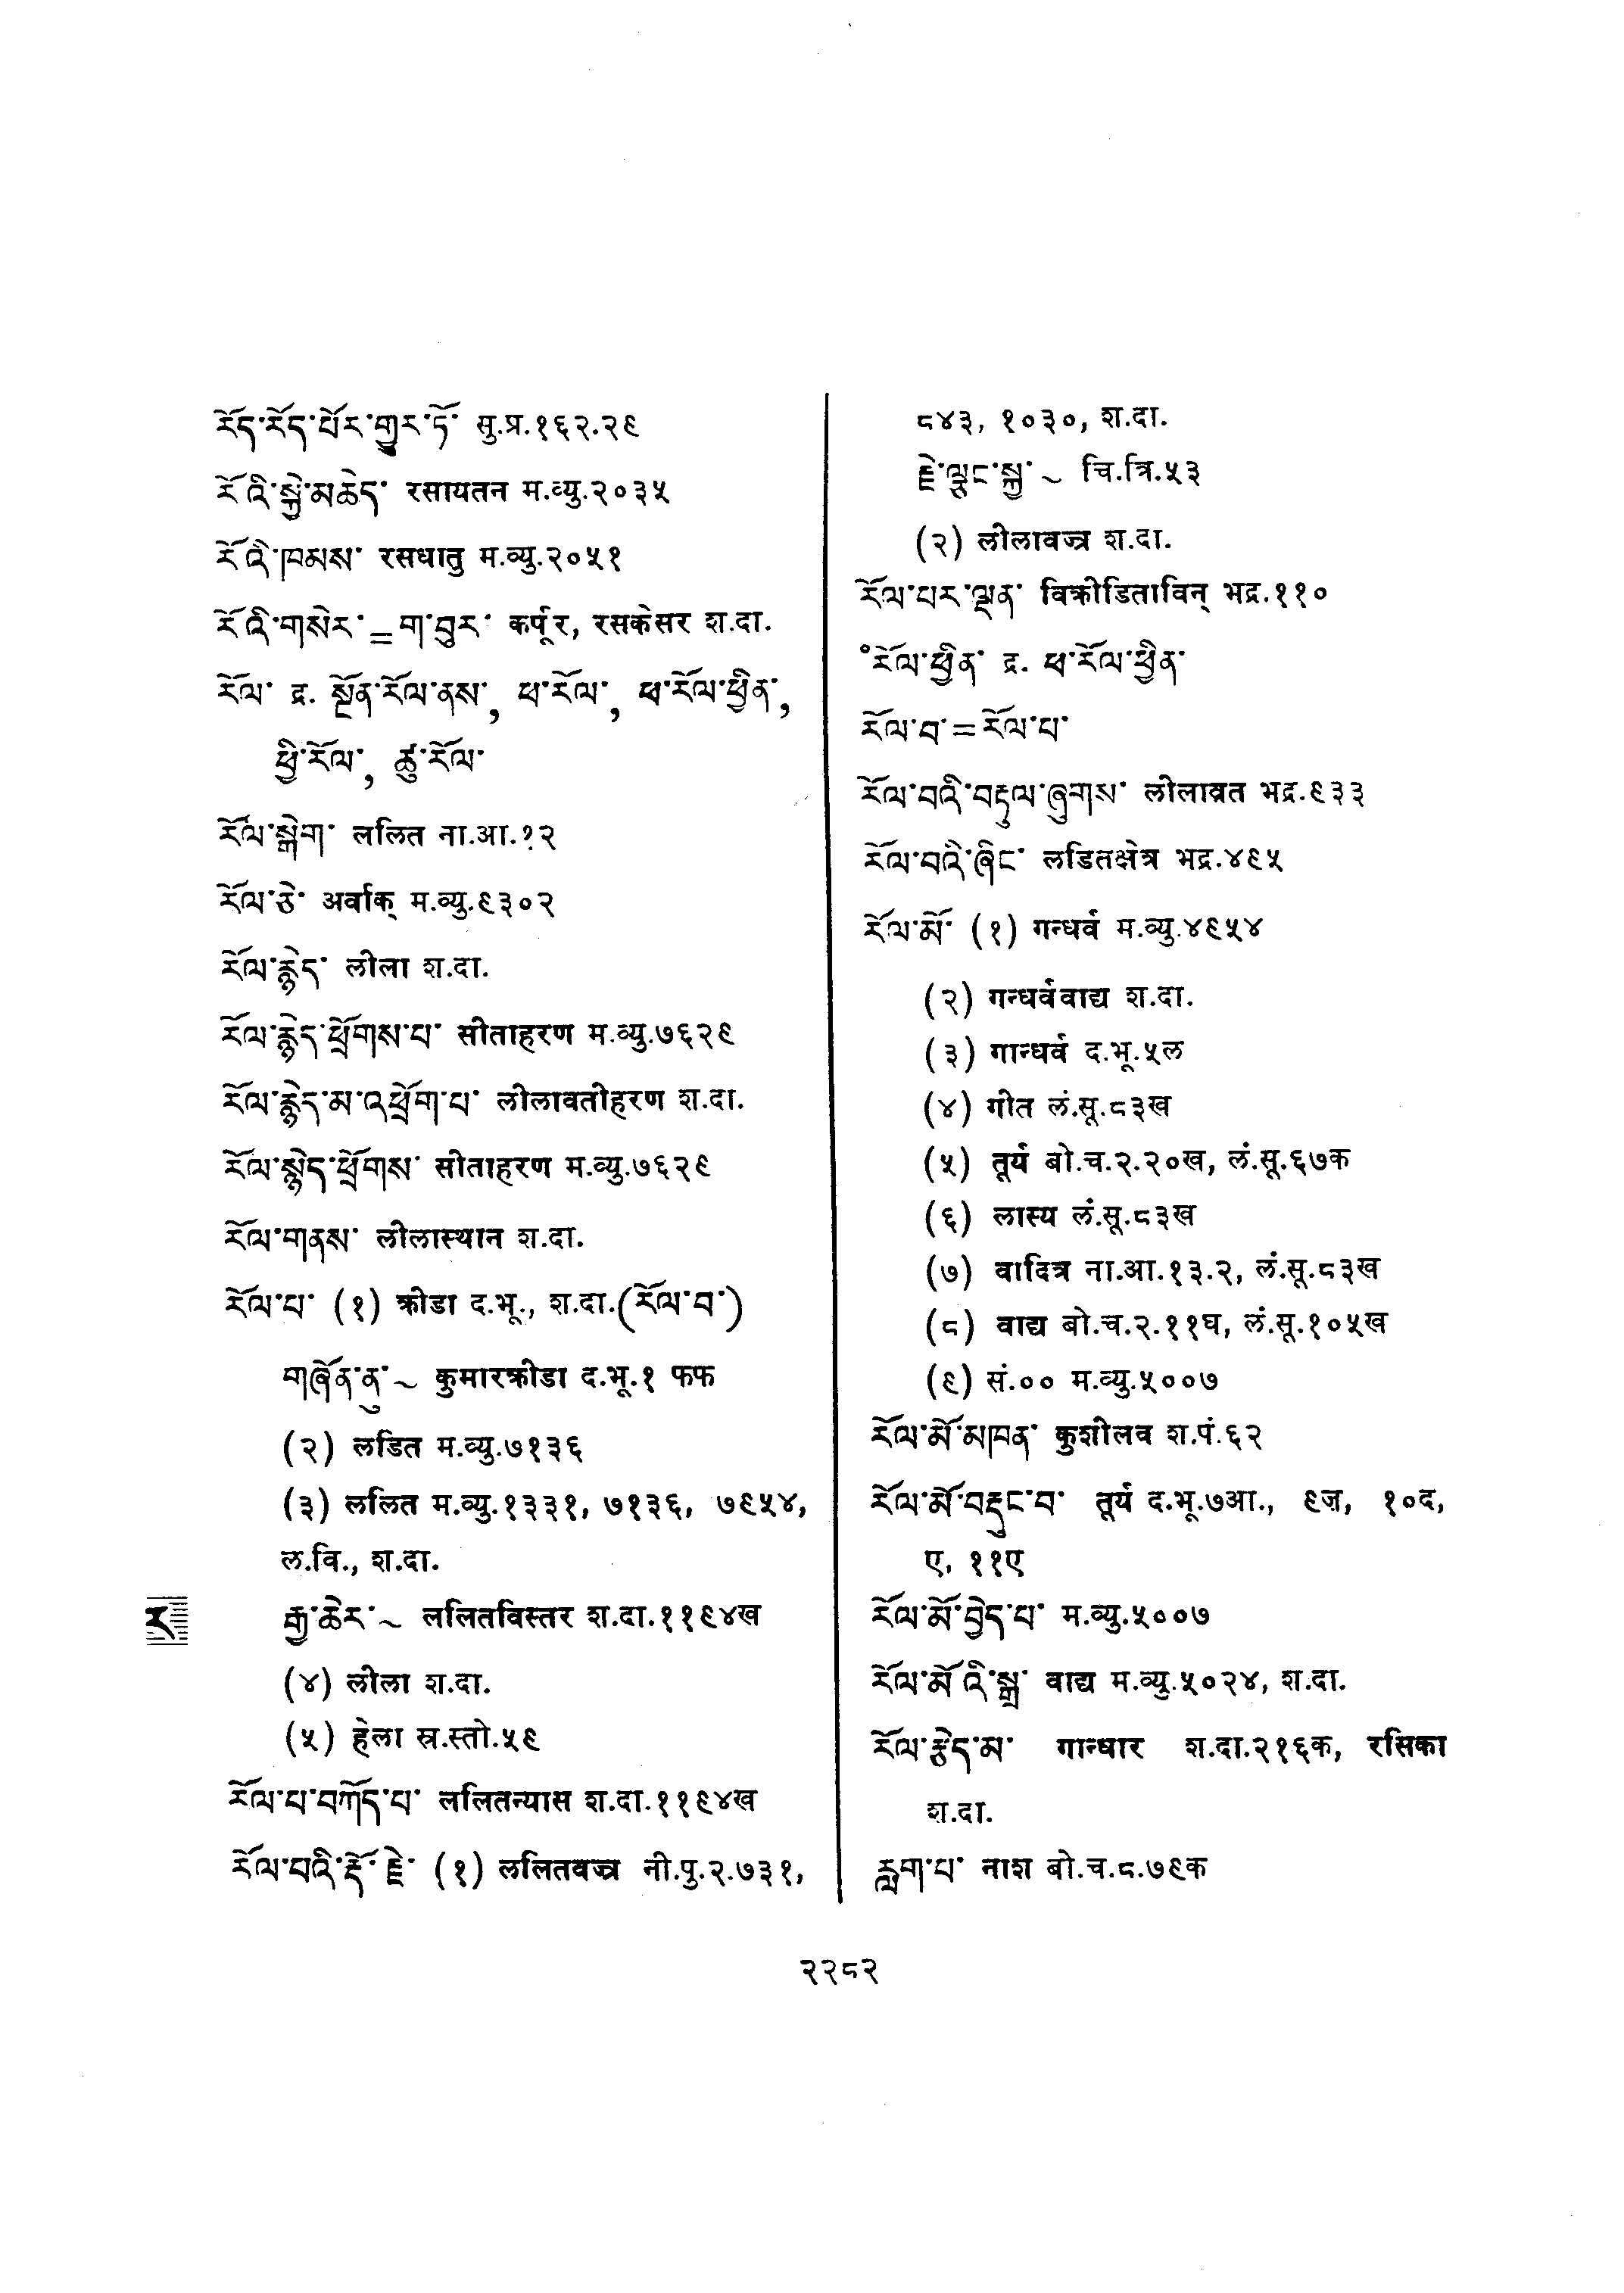 རོད་རོད་པོར་གྱུར་ཏོ་ सु.प्र.१६२.२९
རོའི་སྐྱེ་མཆེད་ रसायतन म.व्यु.२०३५
རོའི་ཁམས་ रसधातु म.व्यु.२०५१
རོའི་གསེར་ = ག་བུར་ कर्पूर, रसकेसर श.दा.
རོལ་ द्र. སྔོན་རོལ་ནས་, ཕ་རོལ་, ཕ་རོལ་ཕྱིན་,
ཕྱི་རོལ་, ཚུ་རོལ་
རོལ་སྒེག་ ललित ना.आ.१२
རོལ་ཅེ་ अर्वाक् म.व्यु.९३०२
རོལ་རྙེད་ लीला श.दा.
རོལ་རྙེད་ཕྲོགས་པ་ सीताहरण म.व्यु.७६२९
རོལ་རྙེད་མ་འཕྲོག་པ་ लीलावतीहरण श.दा.
རོལ་སྙེད་ཕྲོགས་ सीताहरण म.व्यु.७६२९
རོལ་གནས་ लीलास्थान श.दा.
རོལ་པ་ (१) क्रीडा द.भू., श.दा.(རོལ་བ་)
གཞོན་ནུ་ ~ कुमारक्रीडा द.भू.१ फफ
(२) लडित म.व्यु.७१३६
(३) ललित म.व्यु.१३३१, ७१३६, ७९५४,
ल.वि., श.दा.
ར རྒྱ་ཆེར་ ~ ललितविस्तर श.दा.११९४ख
(४) लीला श.दा.
(५) हेला स्र.स्तो.५९
རོལ་པ་བཀོད་པ་ ललितन्यास श.दा.११९४ख
རོལ་བའི་རྡོ་རྗེ་ (१) ललितवज्र नी.पु.२.७३१,
८४३, १०३०, श.दा.
རྗེ་ལྷུང་སྐྱ་ ~ चि.त्रि.५३
(२) लीलावज्र श.दा.
རོལ་པར་ལྡན་ विक्रीडिताविन् भद्र.११०
°རོལ་ཕྱིན་ द्र. ཕ་རོལ་ཕྱིན་
རོལ་བ་ = རོལ་པ་
རོལ་བའི་བརྟུལ་ཞུགས་ लीलाव्रत भद्र.९३३
རོལ་བའི་ཞིང་ लडितक्षेत्र भद्र.४९५
རོལ་མོ་ (१) गन्धर्व म.व्यु.४९५४
(२) गन्धर्ववाद्य श.दा.
(३) गान्धर्व द.भू.५ल
(४) गीत लं.सू.८३ख
(५) तूर्य बो.च.२.२०ख, लं.सू.६७क
(६) लास्य लं.सू.८३ख
(७) वादित्र ना.आ.१३.२, लं.सू.८३ख
(८) वाद्य बो.च.२.११घ, लं.सू.१०५ख
(९) सं.०० म.व्यु.५००७
རོལ་མོ་མཁན་ कुशीलव श.पं.६२
རོལ་མོ་བརྡུང་བ་ तूर्य द.भू.७आ., ९ज़, १०द,
ए, ११ए
རོལ་མོ་བྱེད་པ་ म.व्यु.५००७
རོལ་མོའི་སྒྲ་ वाद्य म.व्यु.५०२४, श.दा.
རོལ་རྩེད་མ་ गान्धार श.दा.२१६क, रसिका
श.दा.
རླག་པ་ नाश बो.च.८.७९क
२२८२